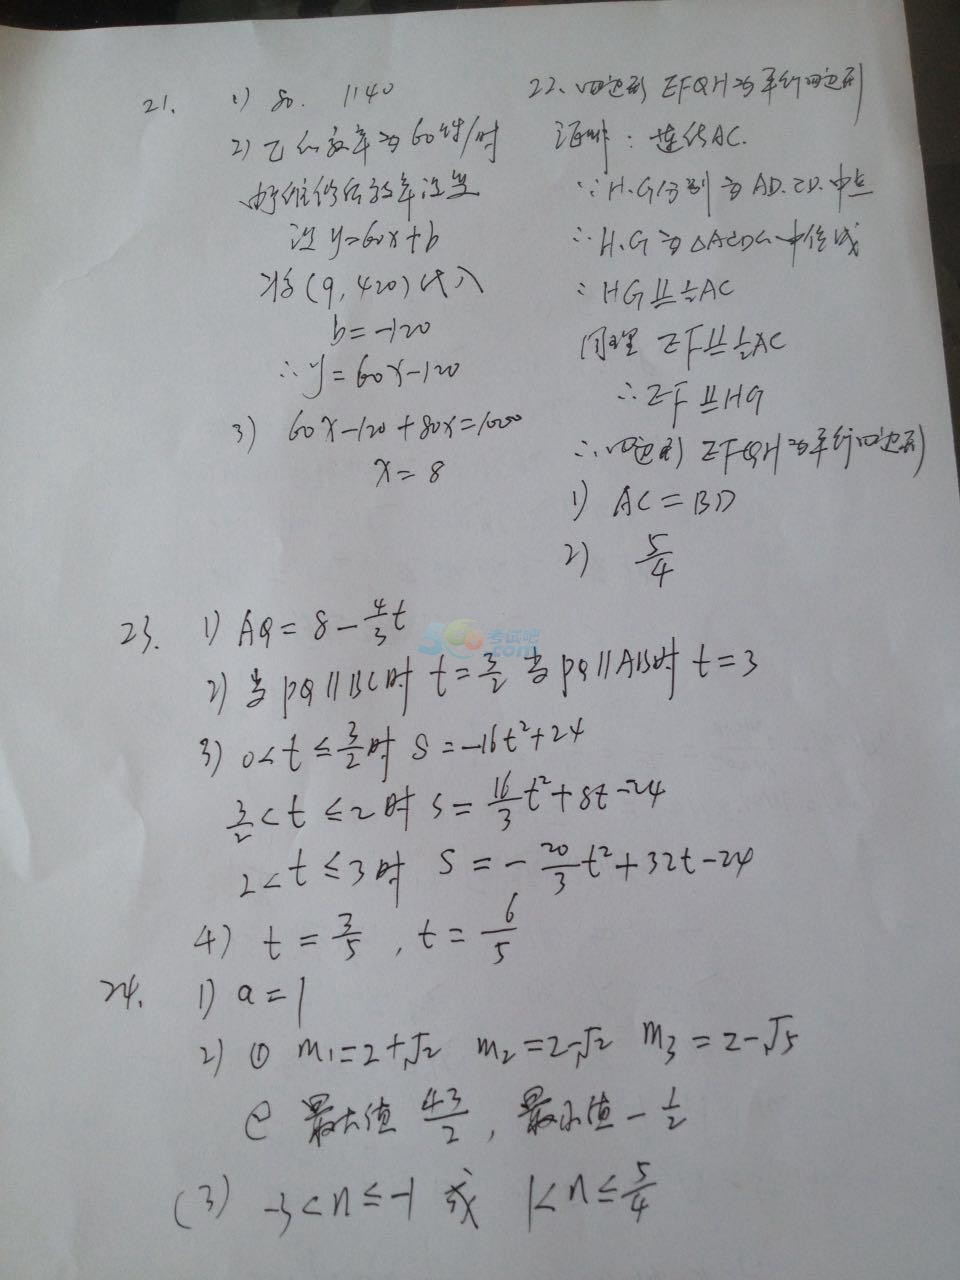 21. 1) 80. 1140
2) 乙的效率为60件/时
好维修后效率没变
设 y=60x+b
将(9,420)代入
b=-120
∴y=60x-120
3) 60x-120+80x=1000
x=8
22、四边形 EFGH为平行四边形
证明:连结AC.
∵H.G分别为AD.CD.中点
∴H.G为△ACD的中位线
∴HG⫽½AC
同理 EF⫽½AC
∴EF⫽HG
∴四边形 EFGH为平行四边形
1) AC=BD
2) 5/4
23. 1) AQ=8-4/3t
2) 当PQ∥BC时 t=3/2 当PQ∥AB时 t=3
3) 0<t≤3/2时 S=-16t²+24
3/2<t≤2时 S=16/3t²+8t-24
2<t≤3时 S=-20/3t²+32t-24
4) t=3/5, t=6/5
24. 1) a=1
2) ① m₁=2+√2 m₂=2-√2 m₃=2-√5
② 最大值 43/2, 最小值-1/2
(3) -3<n≤-1 或 1<n≤5/4
考试吧
.com